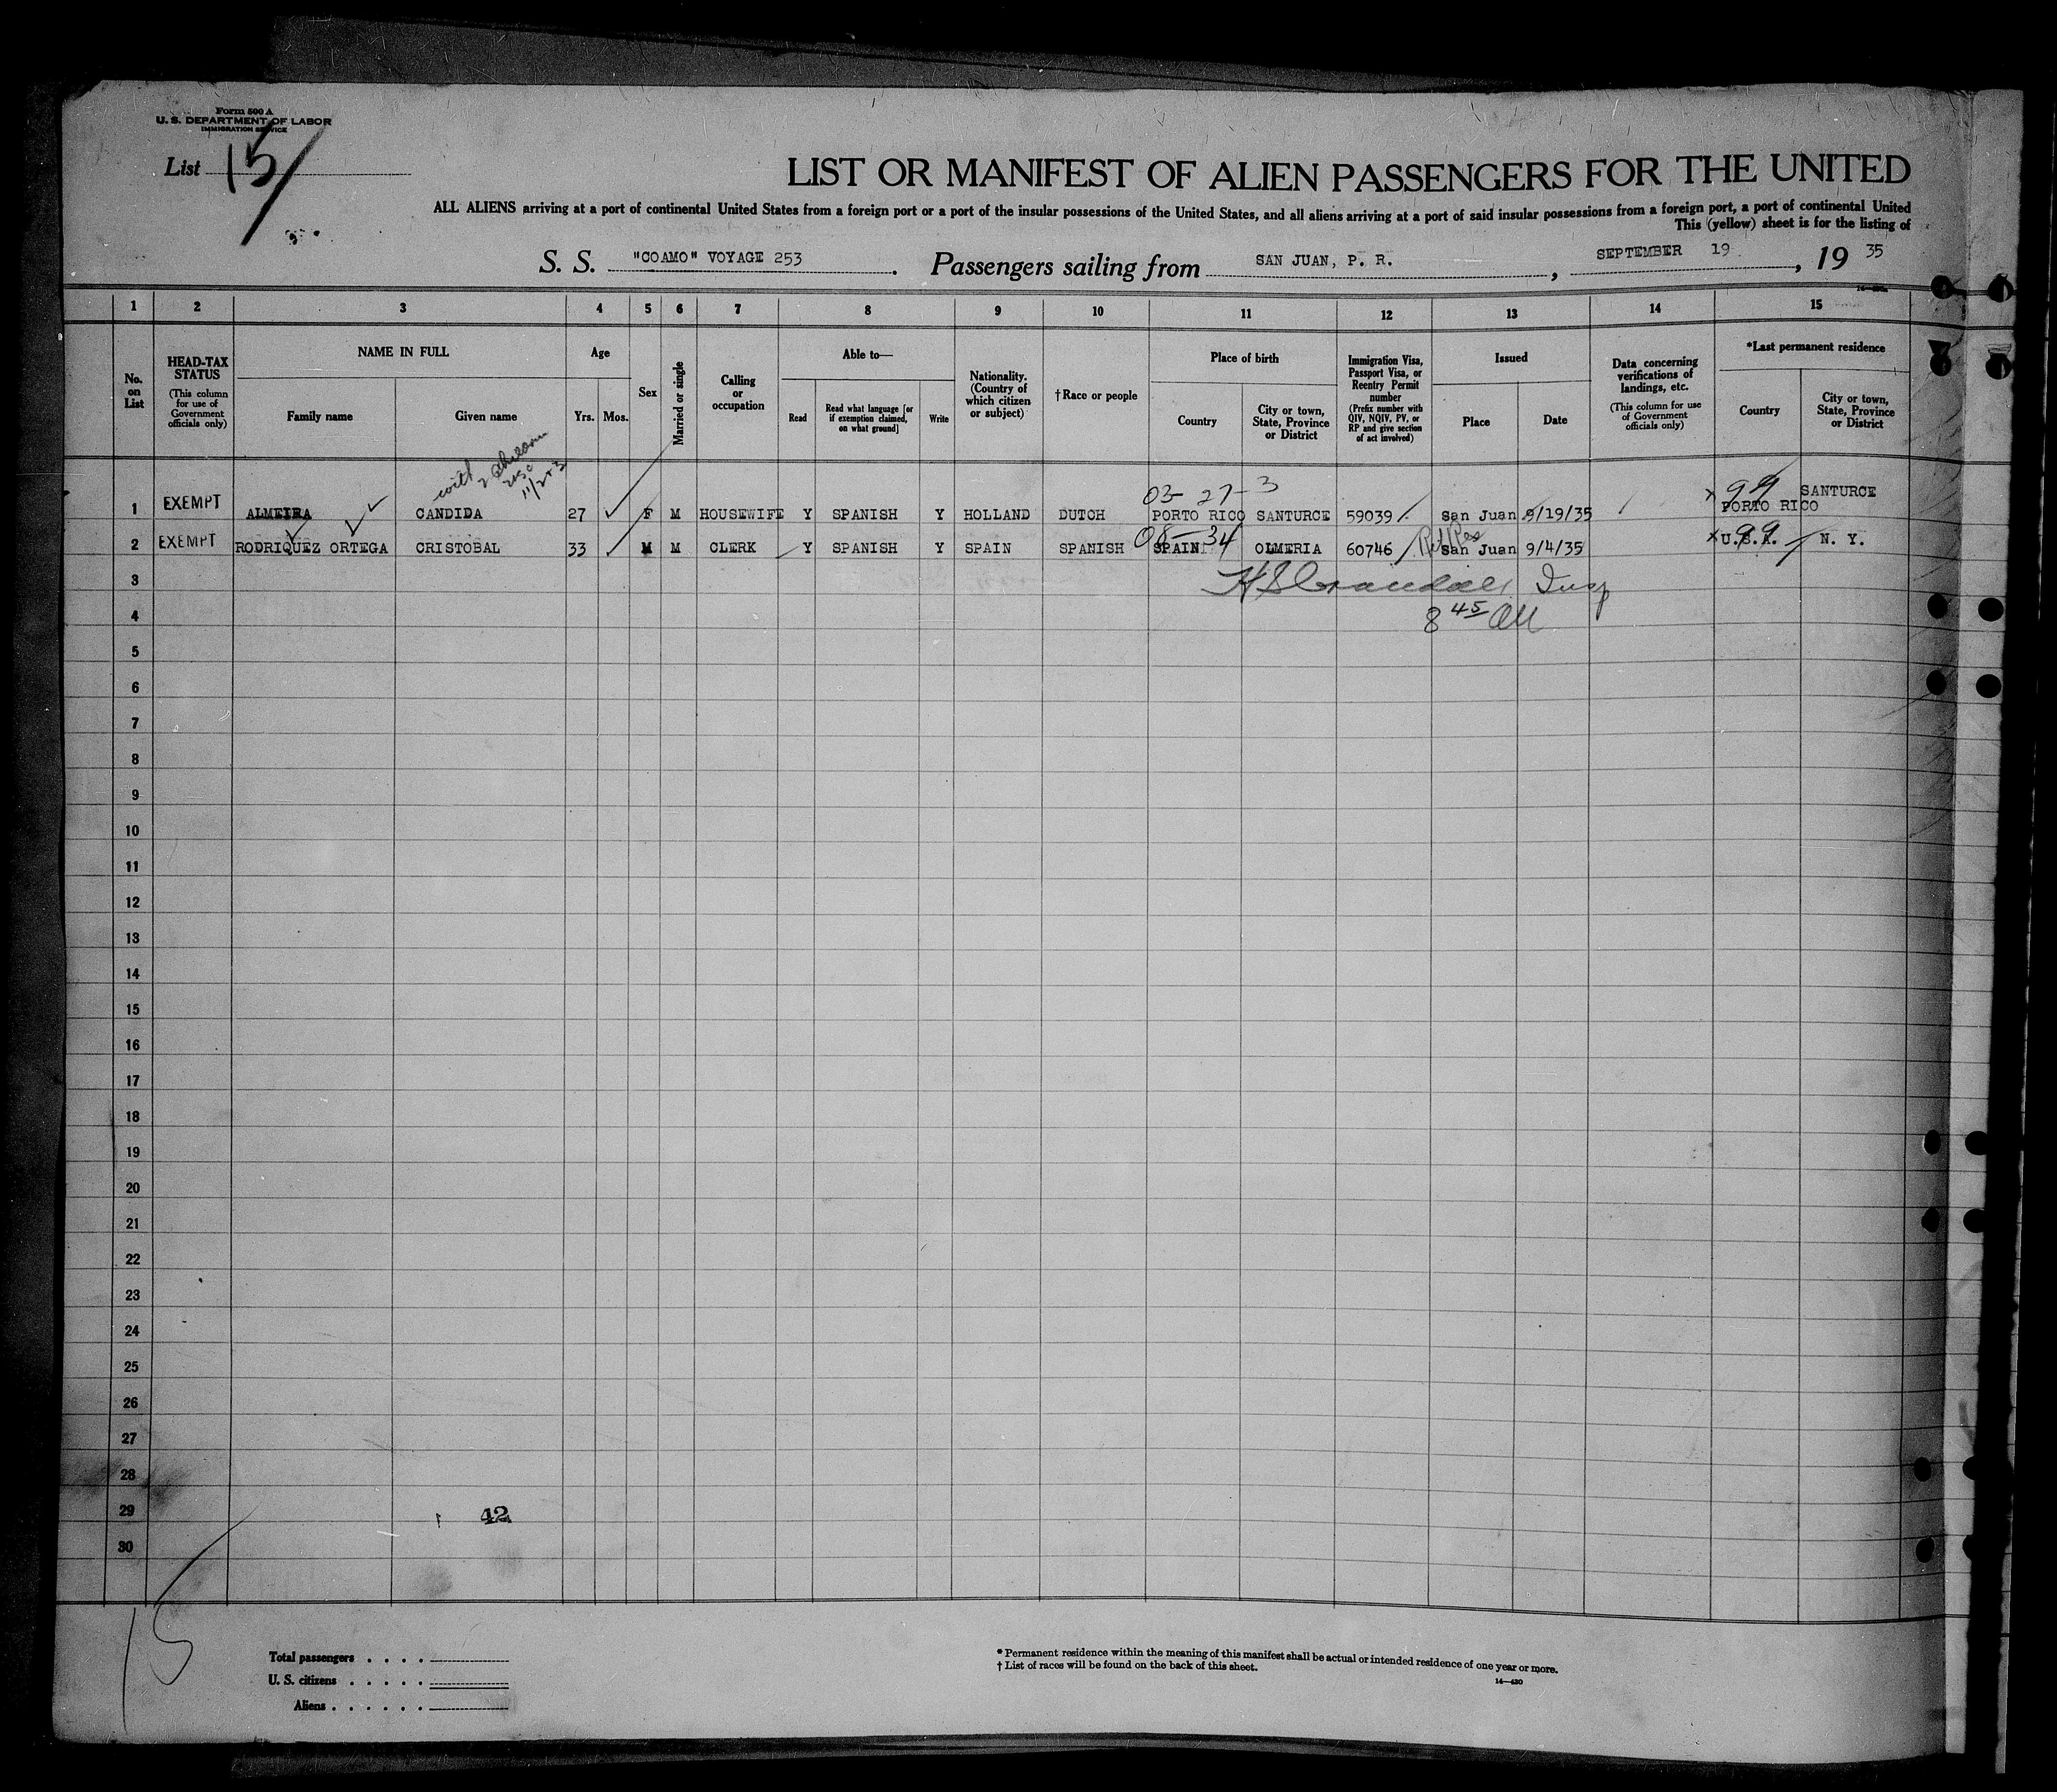 Form 500 A
U. S. DEPARTMENT OF LABOR
IMMIGRATION SERVICE
List 15
LIST OR MANIFEST OF ALIEN PASSENGERS FOR THE UNITED
ALL ALIENS arriving at a port of continental United States from a foreign port or a port of the insular possessions of the United States, and all aliens arriving at a port of said insular possessions from a foreign port, a port of continental United
This (yellow) sheet is for the listing of
S. S. "COAMO" VOYAGE 253. Passengers sailing from SAN JUAN, P. R., SEPTEMBER 19, 19 35
1 2 3 4 5 6 7 8 9 10 11 12 13 14 15
No. on List
HEAD-TAX STATUS
(This column for use of Government officials only)
NAME IN FULL
Family name
Given name
Age
Yrs. Mos.
Sex
Married or single
Calling or occupation
Able to—
Read
Read what language [or if exemption claimed, on what ground]
Write
Nationality. (Country of which citizen or subject)
†Race or people
Place of birth
Country
City or town, State, Province or District
Immigration Visa, Passport Visa, or Reentry Permit number
(Prefix number with QIV, NQIV, PV, or RP and give section of act involved)
Issued
Place
Date
Data concerning verifications of landings, etc.
(This column for use of Government officials only)
*Last permanent residence
Country
City or town, State, Province or District
with 2 children
USC
11/2 + 3
03- 27-3
99
1 EXEMPT ALMEIRA CANDIDA 27 F M HOUSEWIFE Y SPANISH Y HOLLAND DUTCH PORTO RICO SANTURCE 59039 San Juan 9/19/35 PORTO RICO SANTURCE
08-34
99
2 EXEMPT RODRIQUEZ ORTEGA CRISTOBAL 33 M M CLERK Y SPANISH Y SPAIN SPANISH SPAIN OLMERIA 60746 San Juan 9/4/35 U.S.A. N. Y.
3 Insp
4 8 45 AM
5
6
7
8
9
10
11
12
13
14
15
16
17
18
19
20
21
22
23
24
25
26
27
28
29 42
30
15
Total passengers . . . .
U. S. citizens . . . . .
Aliens . . . . . .
* Permanent residence within the meaning of this manifest shall be actual or intended residence of one year or more.
† List of races will be found on the back of this sheet.
14—430